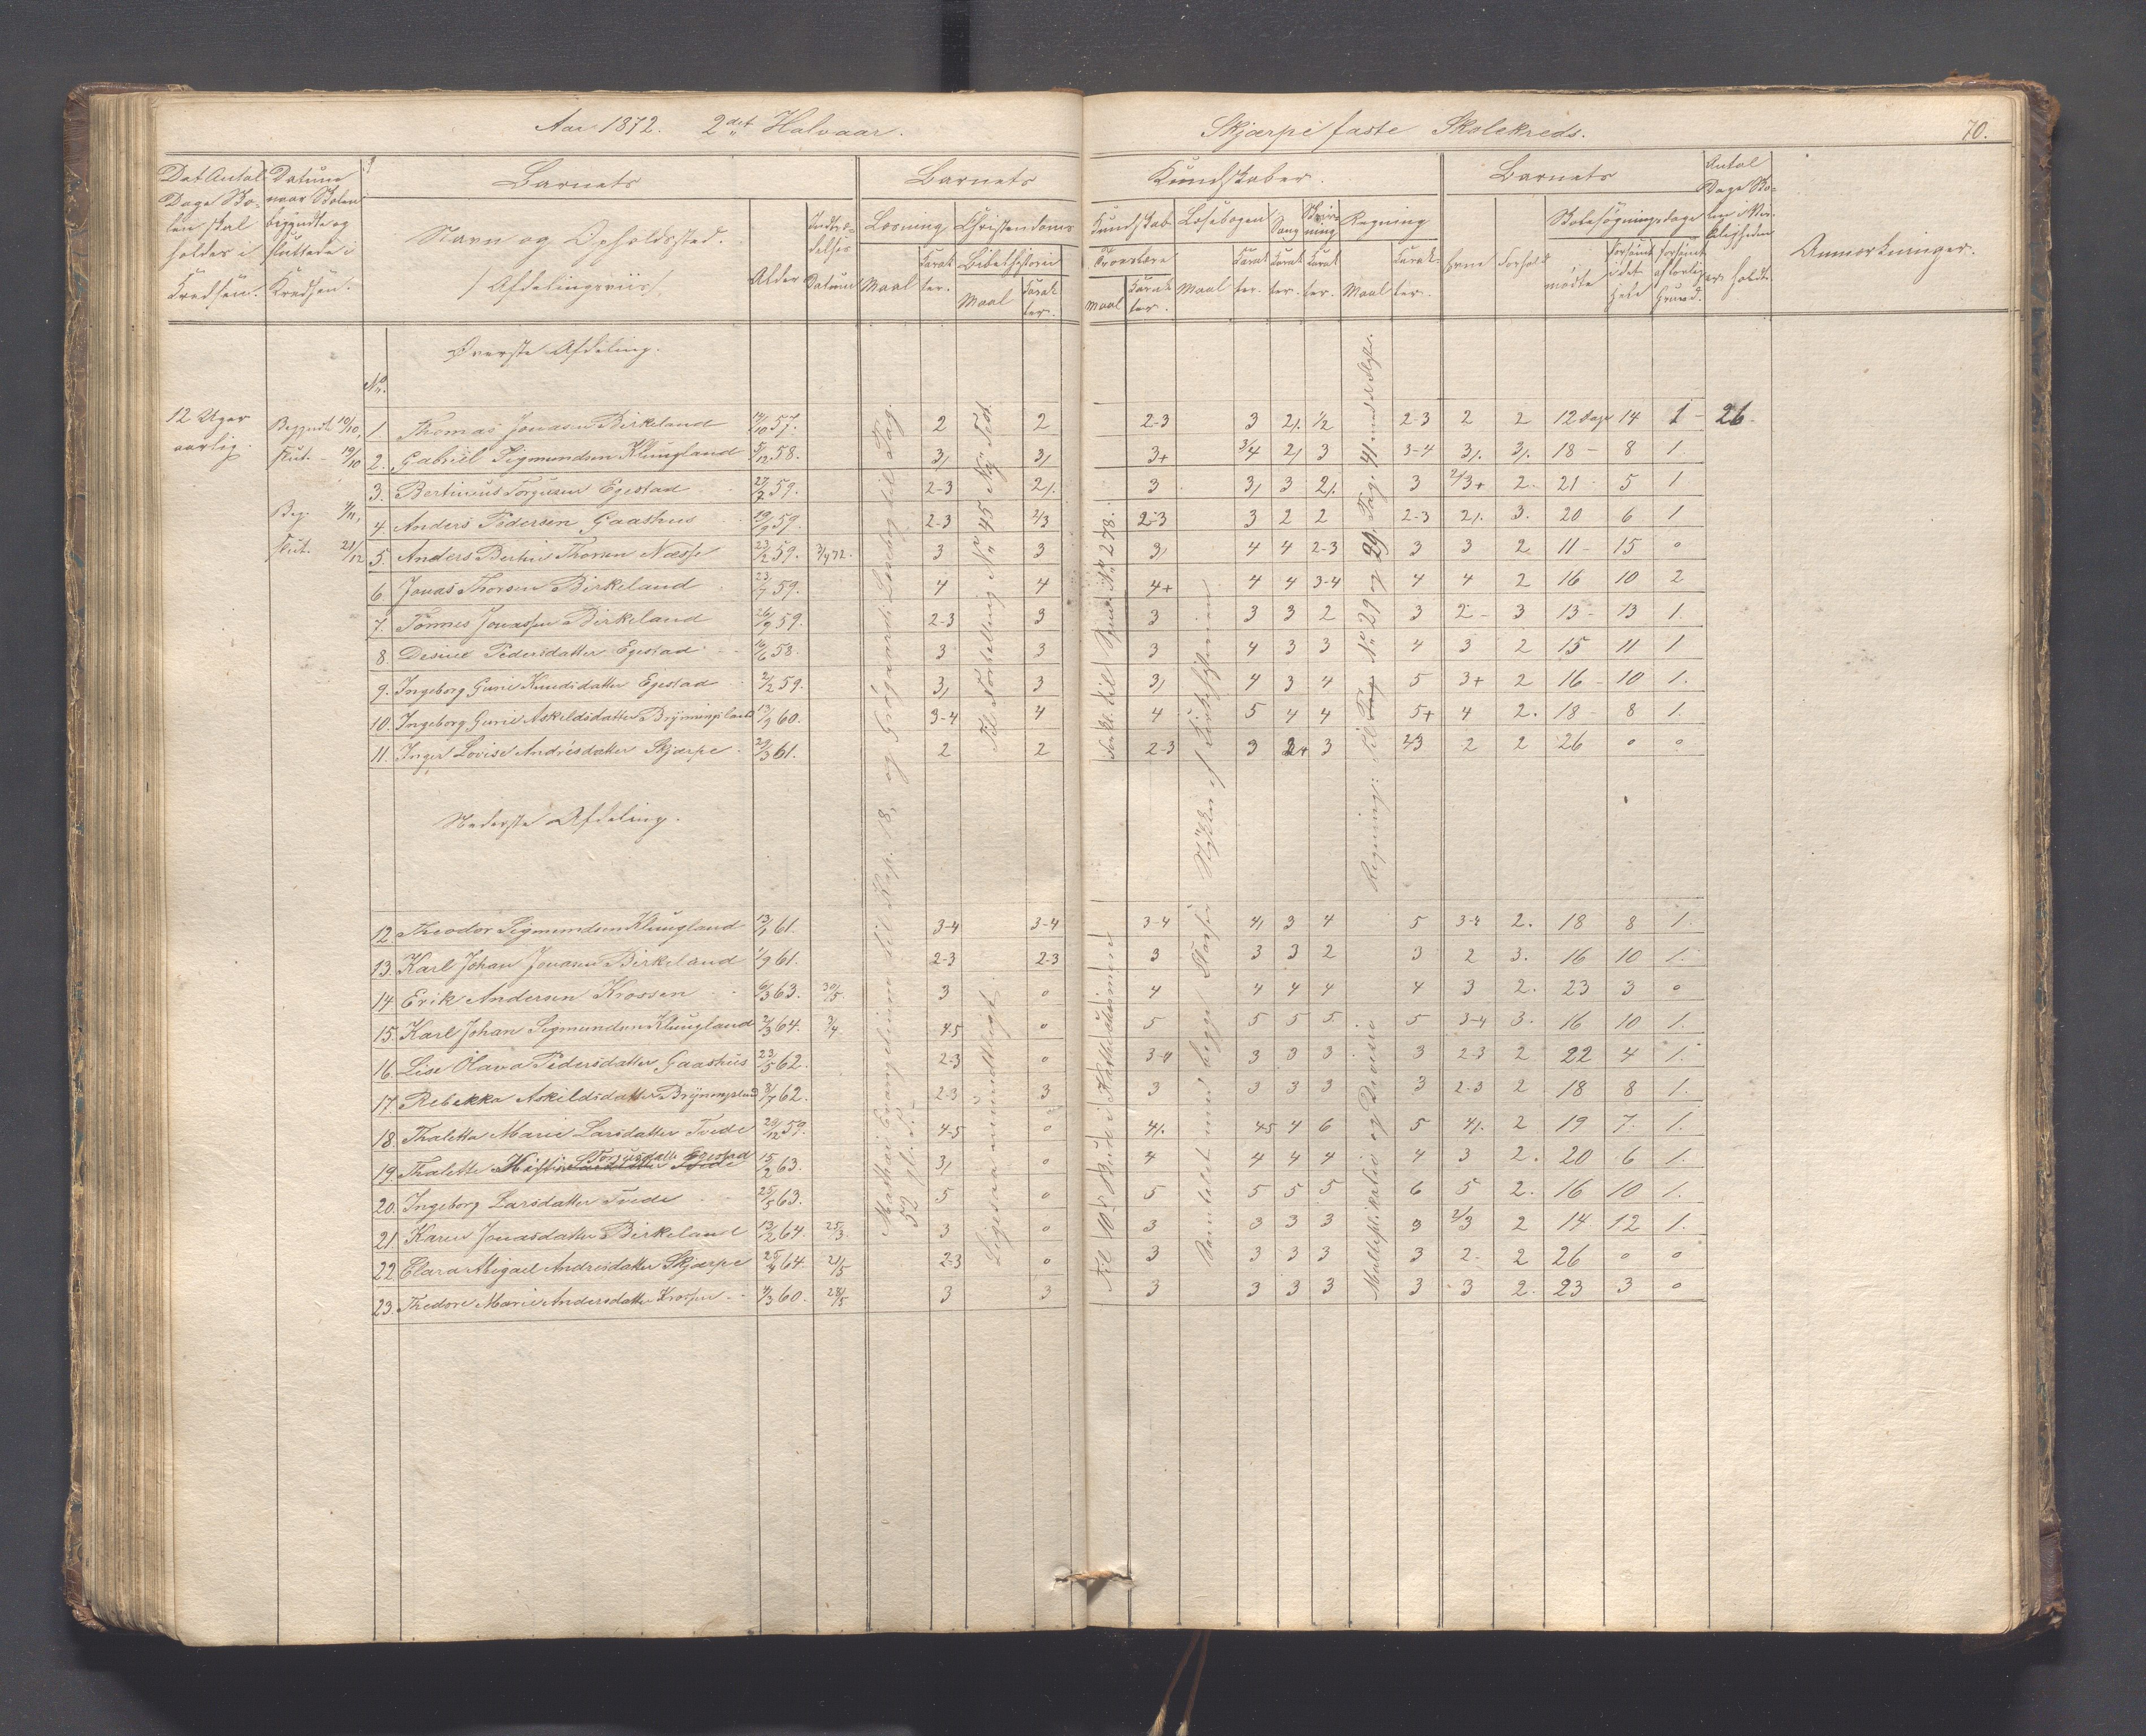 Aar 1872. 2det Halvaar.
Skjærpe faste Skolekreds. 70.
Det Antal Dage Skolen skal holdes i Kredsen.
Datum naar Skolen begyndte og sluttede i Kredsen.
Barnets
Navn og Opholdssted.
/Afdelingsviis/
Alder
Indtrædelses Datum
Barnets Kundskaber.
Læsning
Maal
Karakter.
Christendoms Kundskab
Bibelhistorie
Maal
Karakter.
Troeslære
Maal
Karakter.
Læsebogen
Maal
Karakter.
Sang
Karakter.
Skrivning
Karakter.
Regning
Maal
Karakter.
Barnets
Evne
Forhold
Skolesøgningsdage
mødte
forsømt i det Hele
forsømt af lovlig Grund.
Antal Dage Skolen i Virkeligheden er holdt.
Anmærkninger.
Øverste Afdeling.
No.
12 Uger aarlig.
Begyndt 10/10,
slut. 19/10
Beg. 4/11,
slut. 21/12
1. Thomas Jonasen Birkeland 14/10 57. 2 2 2-3 3 2/. 1/2 2-3 2 2 12 Dage 14 1 - 26.
2. Gabriel Sigmundsen Klungland 5/12 58. 3/ 3/ 3+ 3/4 2/ 3 3-4 3/. 3/. 18 - 8 1.
3. Bertinius Torgusen Egestad 27/7 59. 2-3 2/. 3 3/ 3 2/. 3 2/3+ 2. 21 5 1
4. Anders Pedersen Gaashus 19/9 59. 2-3 2/3 2-3 3 2 2 2-3 2/. 3. 20 6 1
5. Anders Bertin Thorsen Næsse 23/2 59. 3/4 72. 3 3 3/ 4 4 2-3 3 3 2 11 - 15 0
6. Jonas Thorsen Birkeland 23/7 59. 4 4 4+ 4 4 3-4 4 4 2 16 10 2
7. Tønnes Jonassen Birkeland 26/9 59. 2-3 3 3 3 3 2 3 2 - 3 13 - 13 1.
8. Desine Pedersdatter Egestad 16/6 58. 3 3 3 4 3 3 4 3 2 15 11 1
9. Ingeborg Gurie Knudsdatter Egestad 2/2 59. 3/ 3 3/ 4 3 4 5 3+ 2 16 - 10 1.
10. Ingeborg Gurie Askildsdatter Bryningsland 13/9 60. 3-4 4 4 5 4 4 5+ 4 2. 18 - 8 1.
11. Inger Lovise Andresdatter Skjærpe 29/3 61. 2 2 2-3 3 2+ 3 2/3 2 2 26 0 0
Nederste Afdeling.
12. Theodor Sigmundsen Klungland 13/1 61. 3-4 3-4 3-4 4/ 3 4 5 3-4 2. 18 8 1.
13. Karl Johan Jonasen Birkeland 1/9 61. 2-3 2-3 3 3 3 2 3 2 3. 16 10 1.
14. Erik Andersen Krossen 6/3 63. 30/5. 3 0 4 4 4 4 4 3 2. 23 3 0
15. Karl Johan Sigmundsen Klungland 2/3 64. 3/4 4-5 0 5 5 5 5. 5 3-4 3. 16 10 1.
16. Lise Olava Pedersdatter Gaashus 23/5 62. 2-3 0 3-4 3 3 3 3 2-3 2 22 4 1.
17. Rebekka Askildsdatter Bryningsland 3/7 62. 2-3 3 3 3 3 3 3 2-3 2 18 8 1.
18. Thaletta Marie Larsdatter Tvede 29/12 59. 4-5 0 4/. 4-5 4 6 5 4/. 2 19 7. 1.
19. Thalette Torgusdatter Egestad 15/2 63. 3/ 0 4 4 4 4 4 3 2. 20 6 1.
20. Ingeborg Larsdatter Tvede 25/5 63. 5 0 5 5 5 5 6 5 2. 16 10 1.
21. Karen Jonasdatter Birkeland 13/2 64. 25/3. 3 0 3 3 3 3 3 2/3 2 14 12 1.
22. Clara Abigael Andresdatter Skjærpe 25/4 64. 21/5 2-3 0 3 3 3 3 3 2. 2 26 0 0
23. Thedore Marie Andersdatter Krossen 4/3 60. 28/5 3 3 3 3 3 3 3 3 2. 23 3 0
Matthæi Evangelium til Kap. 18, og Grøgaards Læsebog til Pag. 52
Til Fortælling No 45 Nye Test.
Ligesaa mundtligt.
Forkl. til Spm. No 278.
Til 10de Bud i Katekismen
Samtalet med begge Stykker af Kirkehistorien
Regning: Til No 29 og 29, Pag. 41
Multiplikation og Division